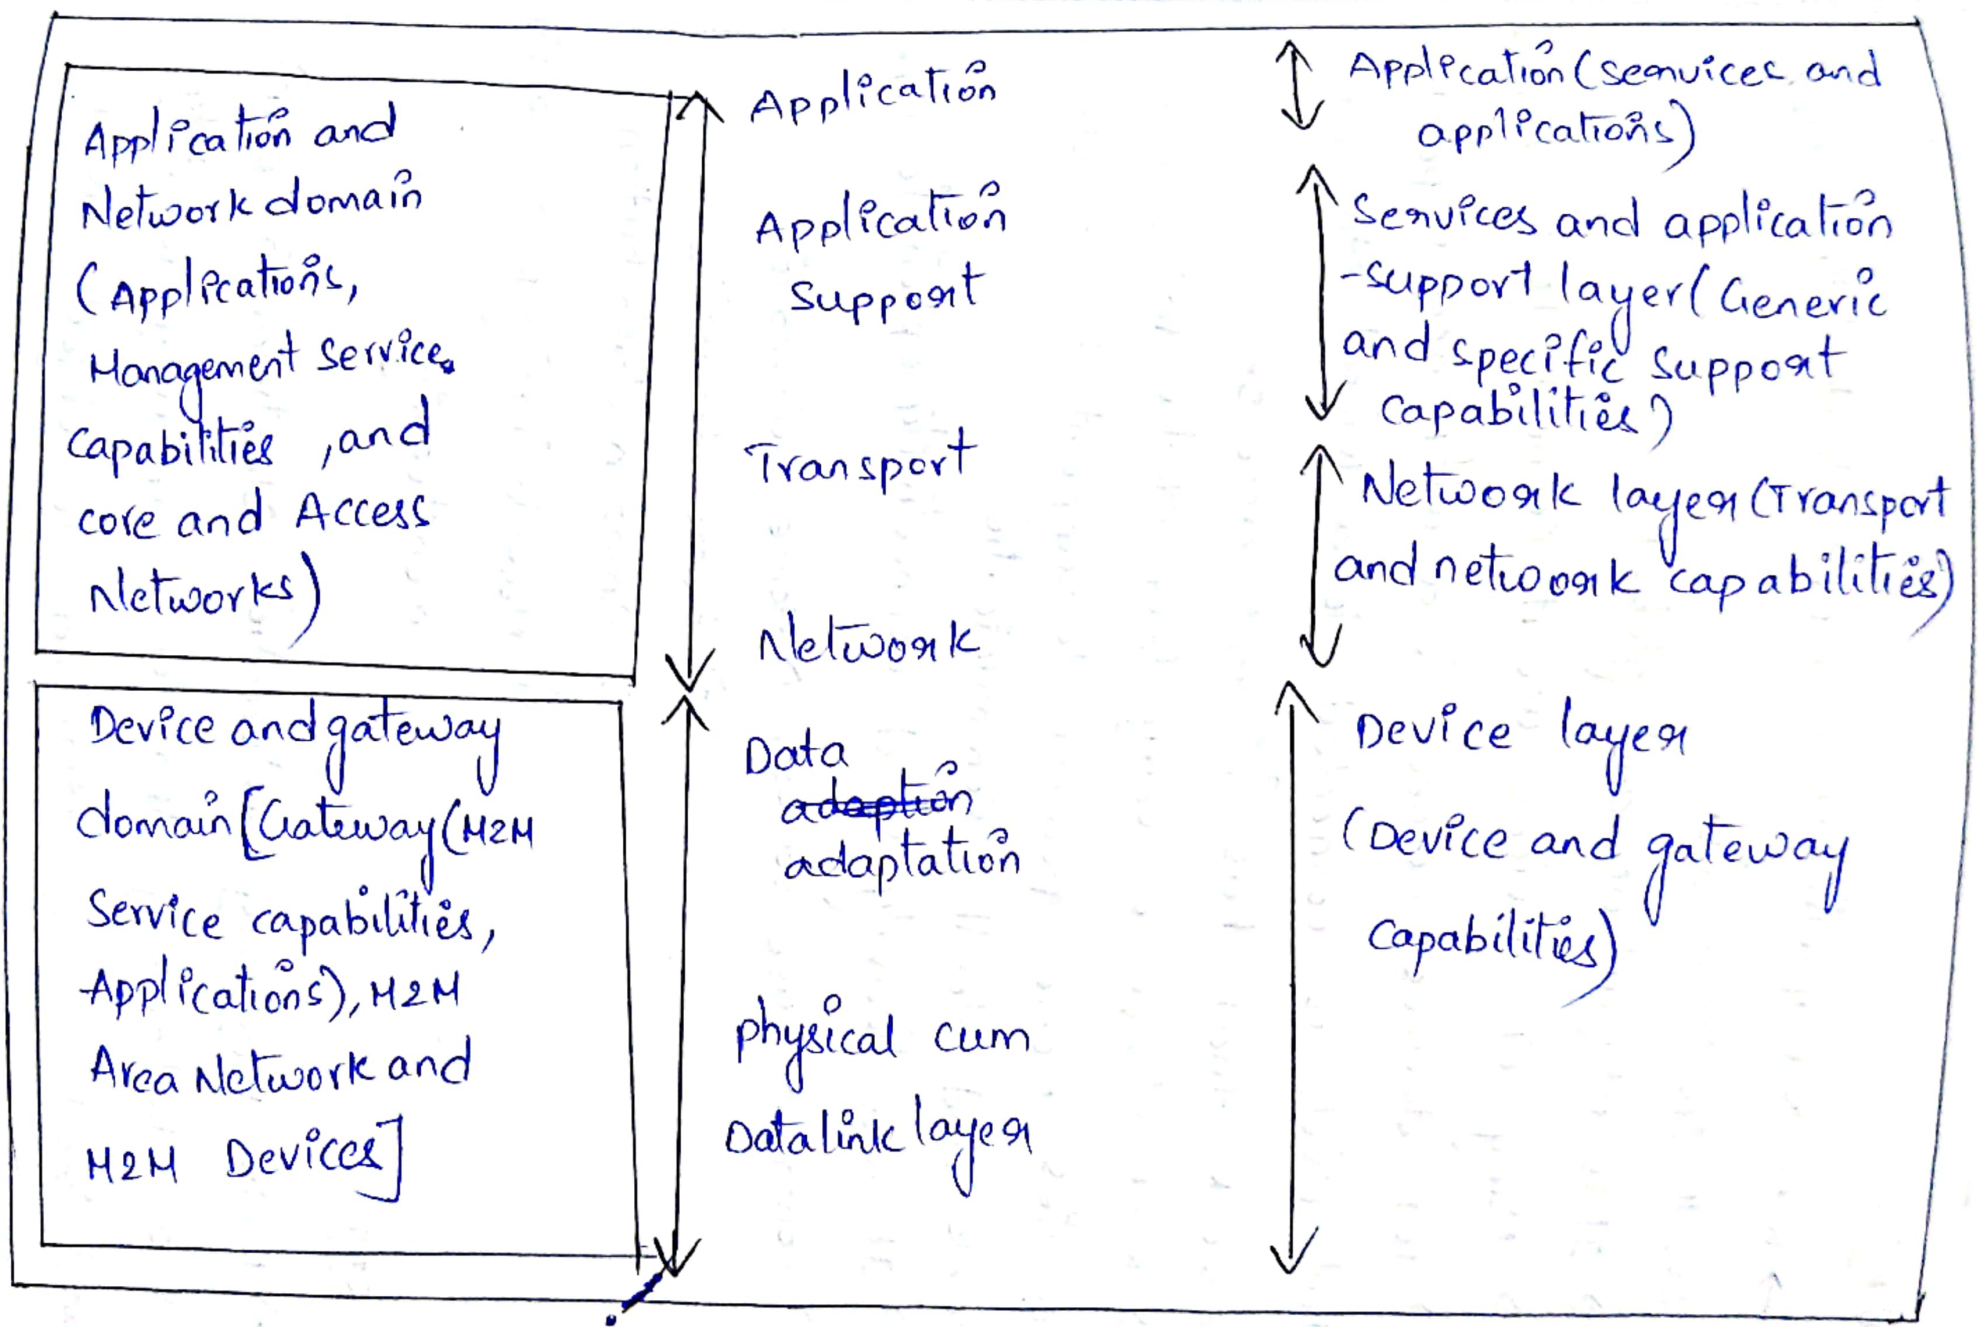 Application and
Network domain
(Applications,
Management Service
Capabilities, and
core and Access
Networks)
Device and gateway
domain [Gateway (M2M
Service capabilities,
Applications), M2M
Area Network and
M2M Devices]
Application
Application
Support
Transport
Network
Data
adaption
adaptation
physical cum
Datalink layer
Application (services and
applications)
Services and application
-support layer (Generic
and specific support
capabilities)
Network layer (Transport
and network capabilities)
Device layer
(Device and gateway
Capabilities)